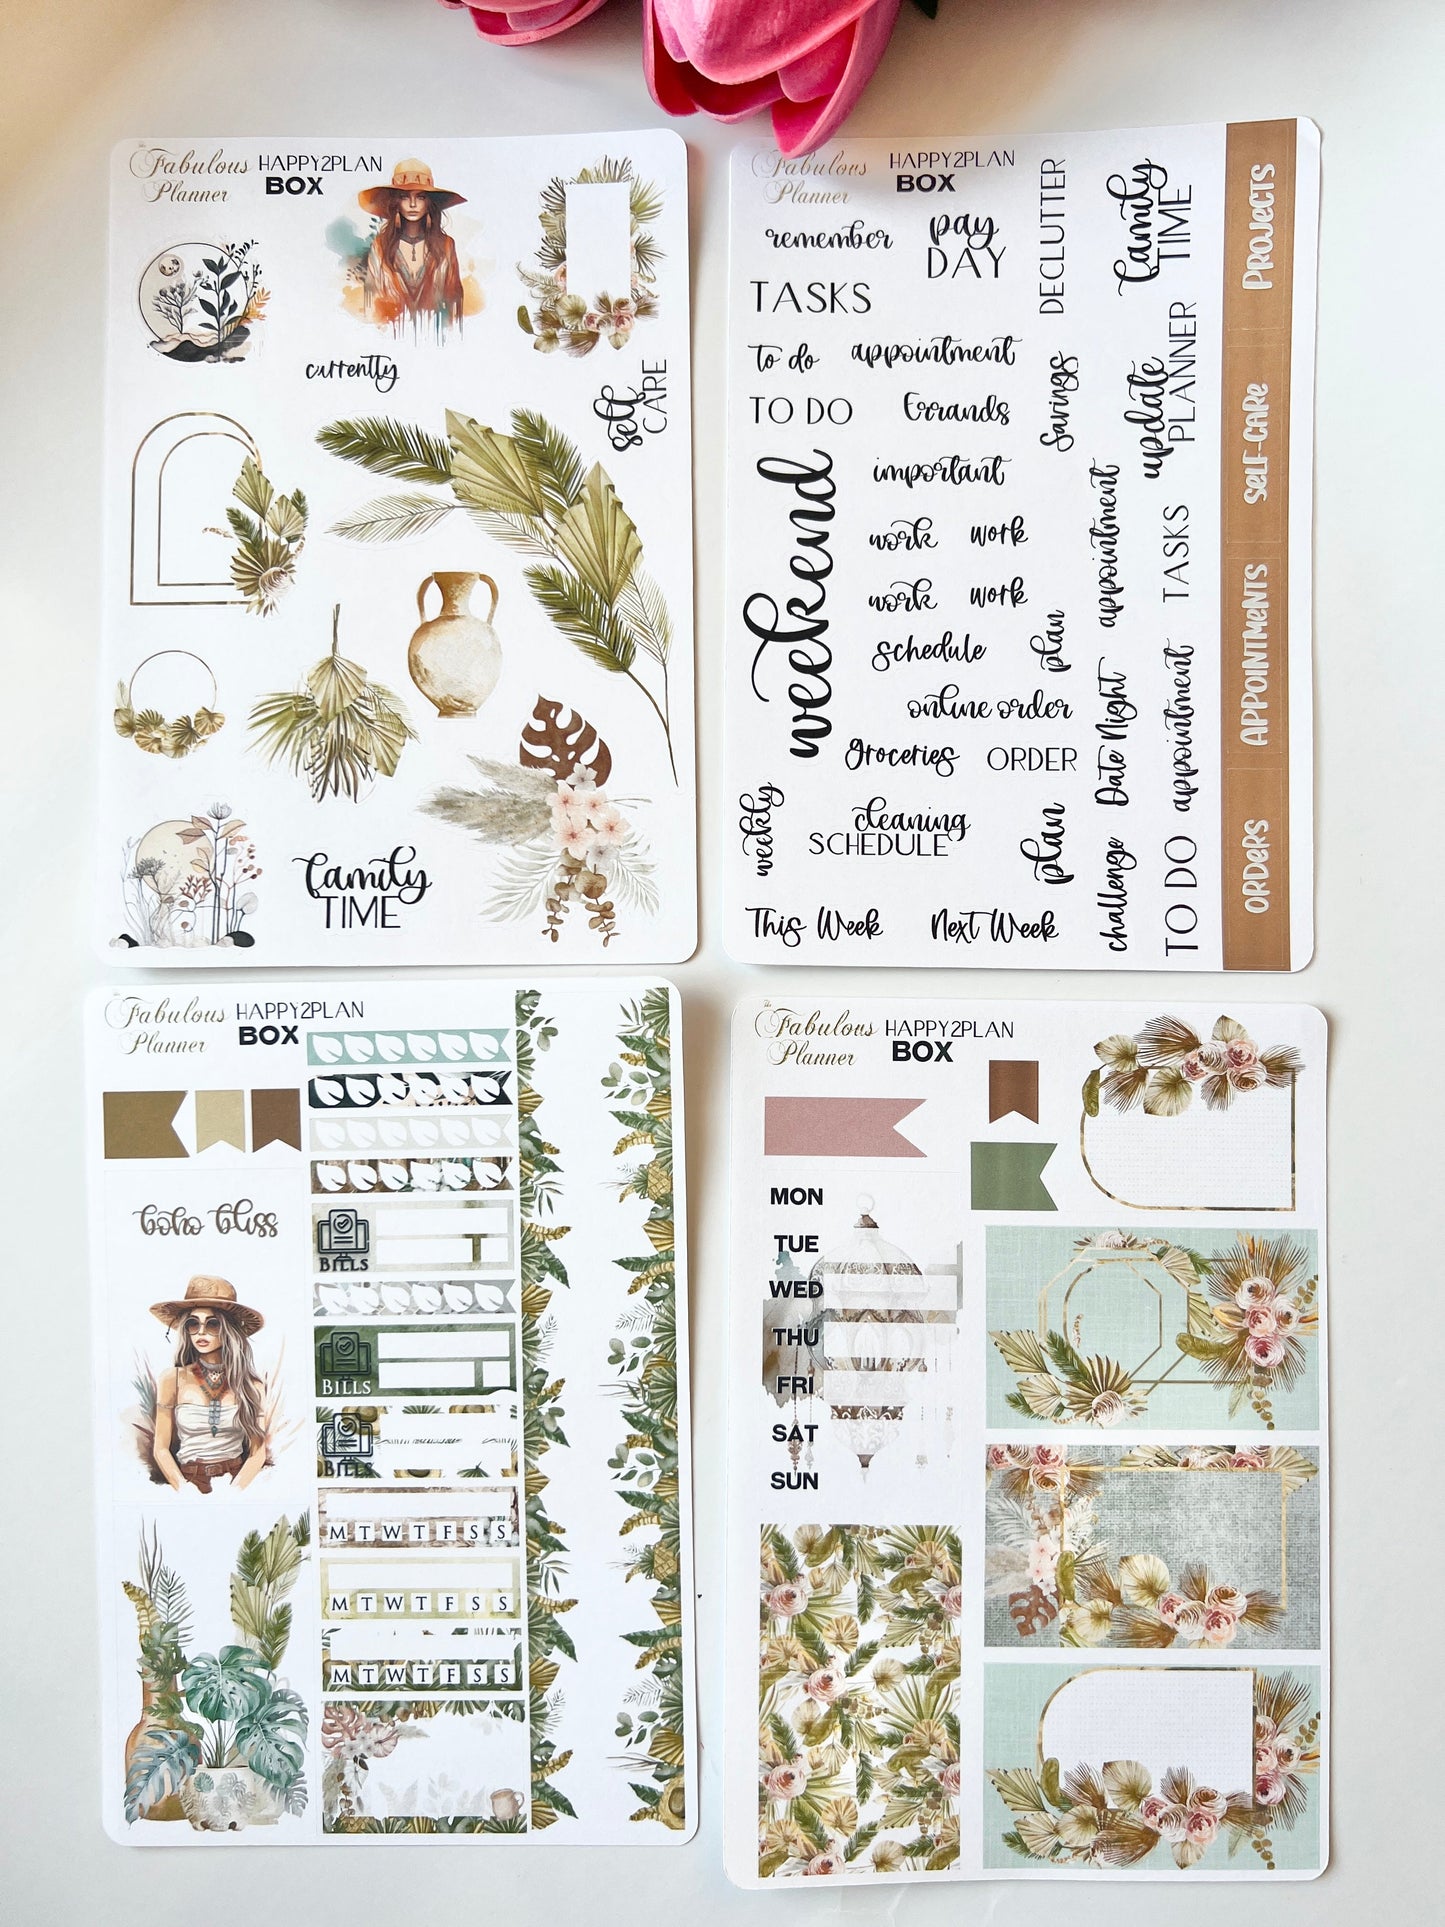 The
Fabulous
Planner
HAPPY2PLAN
BOX
currently
self
CARE
family
TIME
Fabulous
Planner
HAPPY2PLAN
BOX
remember
pay
DAY
DECLUTTER
family
TIME
PROJECTS
TASKS
to do
appointment
savings
update
PLANNER
TO DO
Errands
SELF-CARE
weekend
important
appointment
TASKS
work
work
work
work
schedule
plan
APPOINTMENTS
online order
Date Night
appointment
groceries
ORDER
weekly
cleaning
SCHEDULE
plan
challenge
TO DO
ORDERS
This Week
Next Week
Fabulous
Planner
HAPPY2PLAN
BOX
boho bliss
BILLS
BILLS
BILLS
M T W T F S S
M T W T F S S
M T W T F S S
The
Fabulous
Planner
HAPPY2PLAN
BOX
MON
TUE
WED
THU
FRI
SAT
SUN